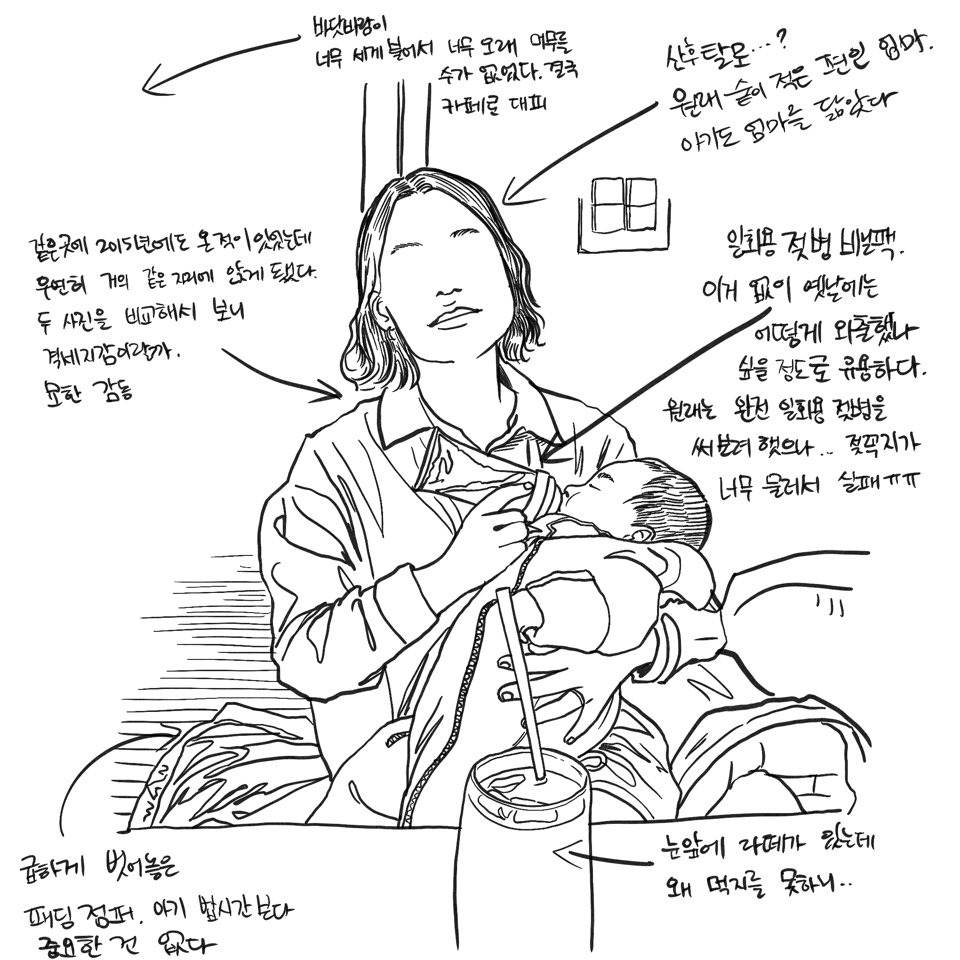 바닷바람이
너무 세게 불어서 너무 오래 머무를
수가 없었다. 결국
카페로 대피
산후탈모...?
원래 숱이 적은 편인 엄마.
아기도 엄마를 닮았다
같은곳에 2015년에도 온적이있었는데
우연히 거의 같은 자리에 앉게 됐다.
두 사진을 비교해서 보니
격세지감이랄까.
묘한 감동
일회용 젖병 비닐팩.
이거 없이 옛날에는
어떻게 외출했나
싶을 정도로 유용하다.
원래는 완전 일회용 젖병을
써보려 했으나... 젖꼭지가
너무 물러서 실패ㅠㅠ
급하게 벗어놓은
패딩 점퍼. 아기 밥시간보다
중요한 건 없다
눈앞에 라떼가 있는데
왜 먹지를 못하니..